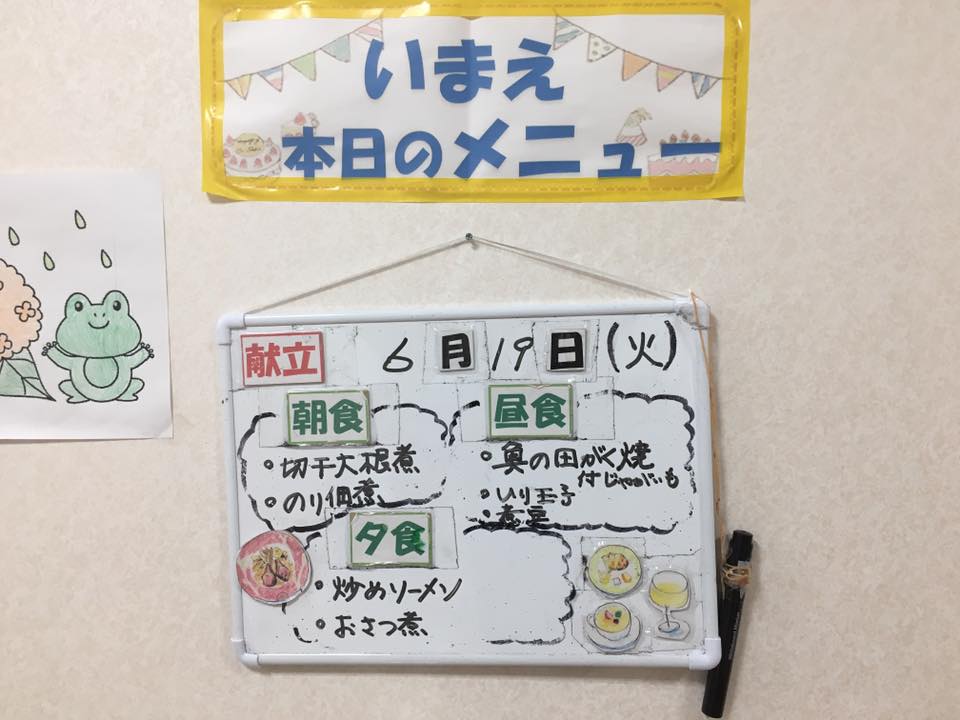 いまえ
本日のメニュー
献立 6月19日(火)
朝食
・切干大根煮
・のり佃煮
昼食
・魚の田がく焼
付じゃがいも
・いり玉子
・煮豆
夕食
・炒めソーメン
・おさつ煮